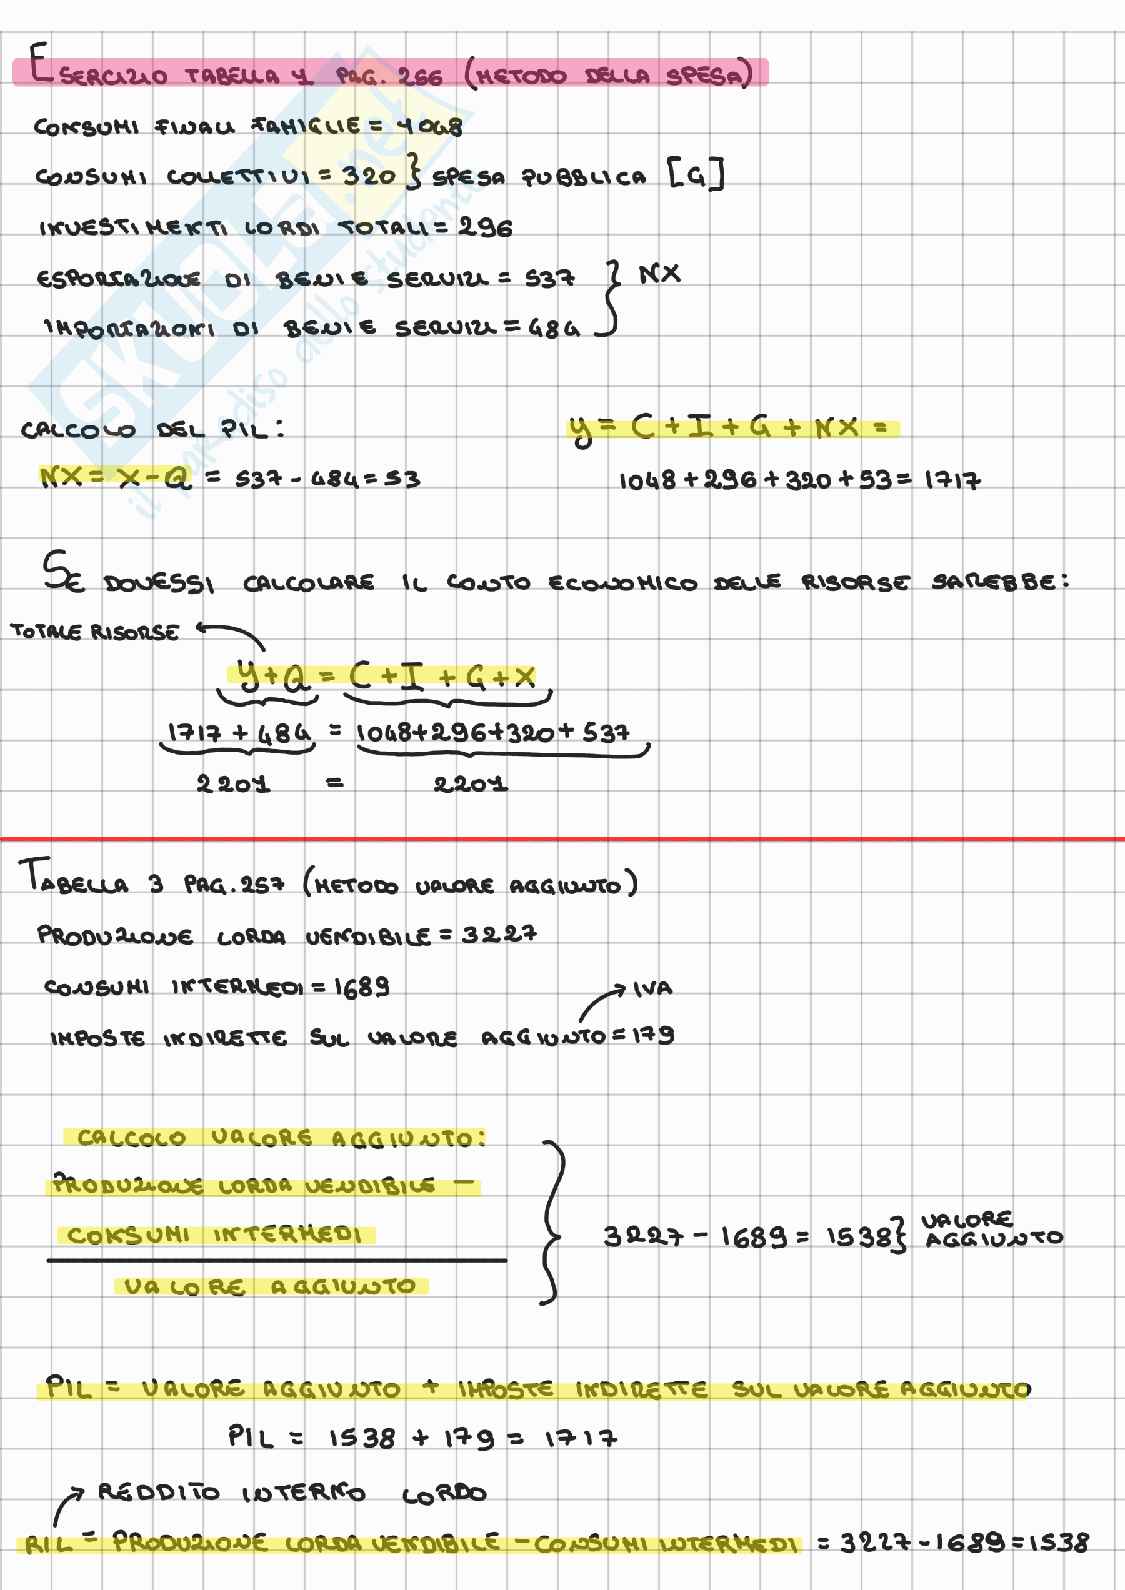 ESERCIZIO TABELLA 1 PAG. 266 (METODO DELLA SPESA)
CONSUMI FINALI FAMIGLIE = 1048
CONSUMI COLLETTIVI = 320 } SPESA PUBBLICA [G]
INVESTIMENTI LORDI TOTALI = 296
ESPORTAZIONE DI BENI E SERVIZI = 537
IMPORTAZIONI DI BENI E SERVIZI = 484 } NX
CALCOLO DEL PIL:
y = C + I + G + NX =
NX = X - Q = 537 - 484 = 53
1048 + 296 + 320 + 53 = 1717
SE DOVESSI CALCOLARE IL CONTO ECONOMICO DELLE RISORSE SAREBBE:
TOTALE RISORSE
Y + Q = C + I + G + X
1717 + 484 = 1048+296+320+ 537
2201 = 2201
TABELLA 3 PAG. 257 (METODO VALORE AGGIUNTO)
PRODUZIONE LORDA VENDIBILE = 3227
CONSUMI INTERMEDI = 1689
IVA
IMPOSTE INDIRETTE SUL VALORE AGGIUNTO = 179
CALCOLO VALORE AGGIUNTO:
PRODUZIONE LORDA VENDIBILE -
CONSUMI INTERMEDI
VALORE AGGIUNTO
3227 - 1689 = 1538 } VALORE AGGIUNTO
PIL = VALORE AGGIUNTO + IMPOSTE INDIRETTE SUL VALORE AGGIUNTO
PIL = 1538 + 179 = 1717
REDDITO INTERNO LORDO
RIL = PRODUZIONE LORDA VENDIBILE - CONSUMI INTERMEDI = 3227 - 1689 = 1538
SKUOLA.net
il paradiso dello studente